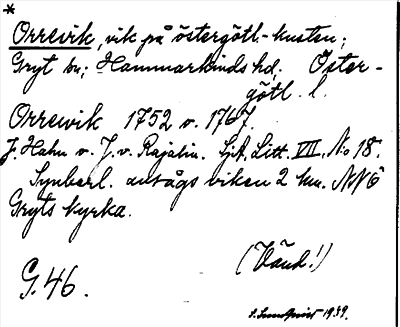 *
Orrevik, vik på östergötl.-kusten;
Gryt sn; Hammarkinds hd, Öster-
götl. l.
Orrewik 1752 o. 1767.
J. Hahn o. J. v. Rajalin. SjA, Litt. VII, No 18.
Synberl. avsågs viken 2 km. NNÖ
Gryts kyrka.
(Vänd!)
G. 46.
S. Lundqvist 1939.